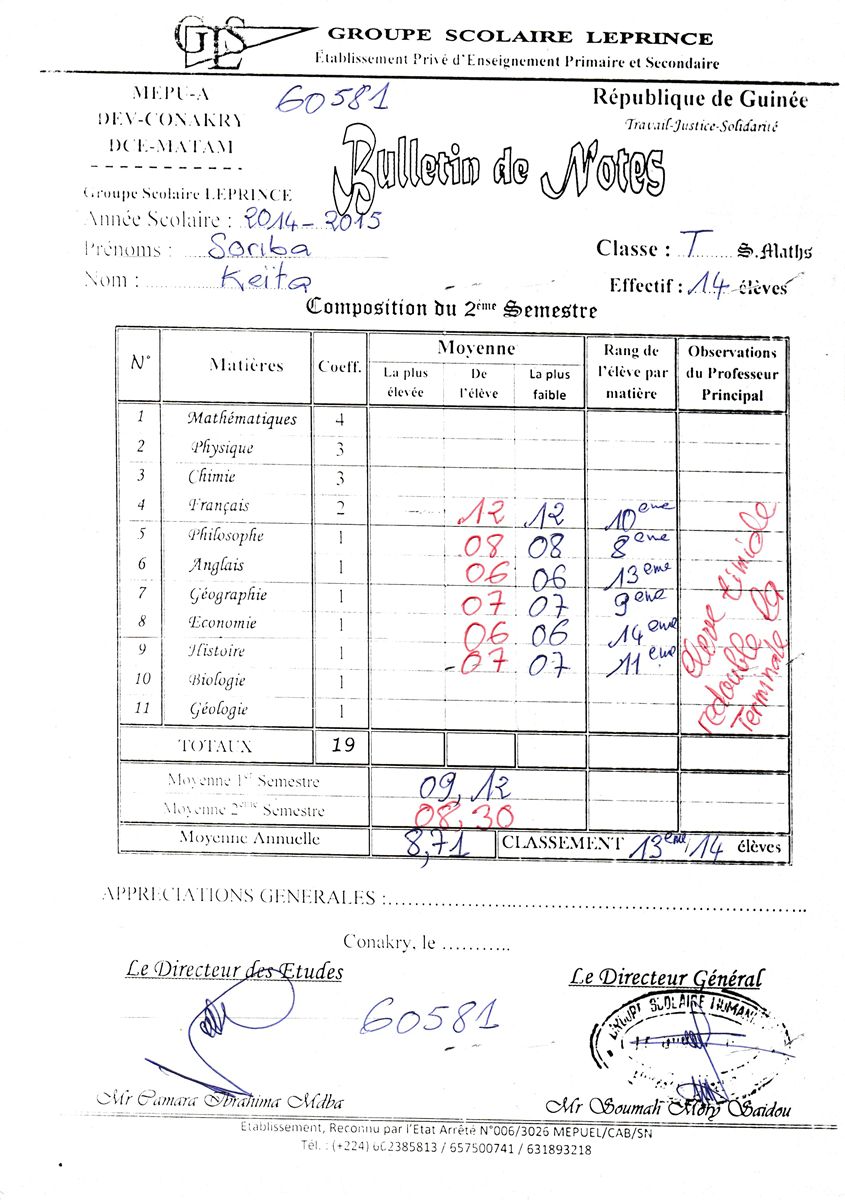 GLS
GROUPE SCOLAIRE LEPRINCE
Établissement Privé d'Enseignement Primaire et Secondaire
MEPU-A 60581 République de Guinée
DEV-CONAKRY Travail-Justice-Solidarité
DCE-MATAM
Bulletin de Notes
Groupe Scolaire LEPRINCE
Année Scolaire : 2014-2015
Prénoms : Soriba Classe : T S.Maths
Nom : Keïta Effectif : 14 élèves
Composition du 2ème Semestre
N° Matières Coeff. Moyenne Rang de l'élève par matière Observations du Professeur Principal
La plus élevée De l'élève La plus faible
1 Mathématiques 4
2 Physique 3
3 Chimie 3
4 Français 2 12 12 10ème
5 Philosophe 1 08 08 8ème
6 Anglais 1 06 06 13ème
7 Géographie 1 07 07 9ème
8 Economie 1 06 06 14ème
9 Histoire 1 07 07 11ème
10 Biologie 1
11 Géologie 1
élève timide
redouble la
Terminale
TOTAUX 19
Moyenne 1er Semestre 09,12
Moyenne 2ème Semestre 08,30
Moyenne Annuelle 8,71 CLASSEMENT 13ème/14 élèves
APPRECIATIONS GENERALES :
Conakry, le ...........
Le Directeur des Etudes Le Directeur Général
60581
GROUPE SCOLAIRE
Mr Camara Ibrahima Mdba Mr Soumah Mory Saidou
Etablissement, Reconnu par l'Etat Arrêté N°006/3026 MEPUEL/CAB/SN
Tél. : (+224) 662385813 / 657500741 / 631893218